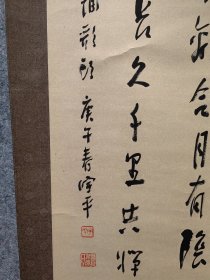 合月有陰
長久千里共嬋
調歌頭 庚午春宇平